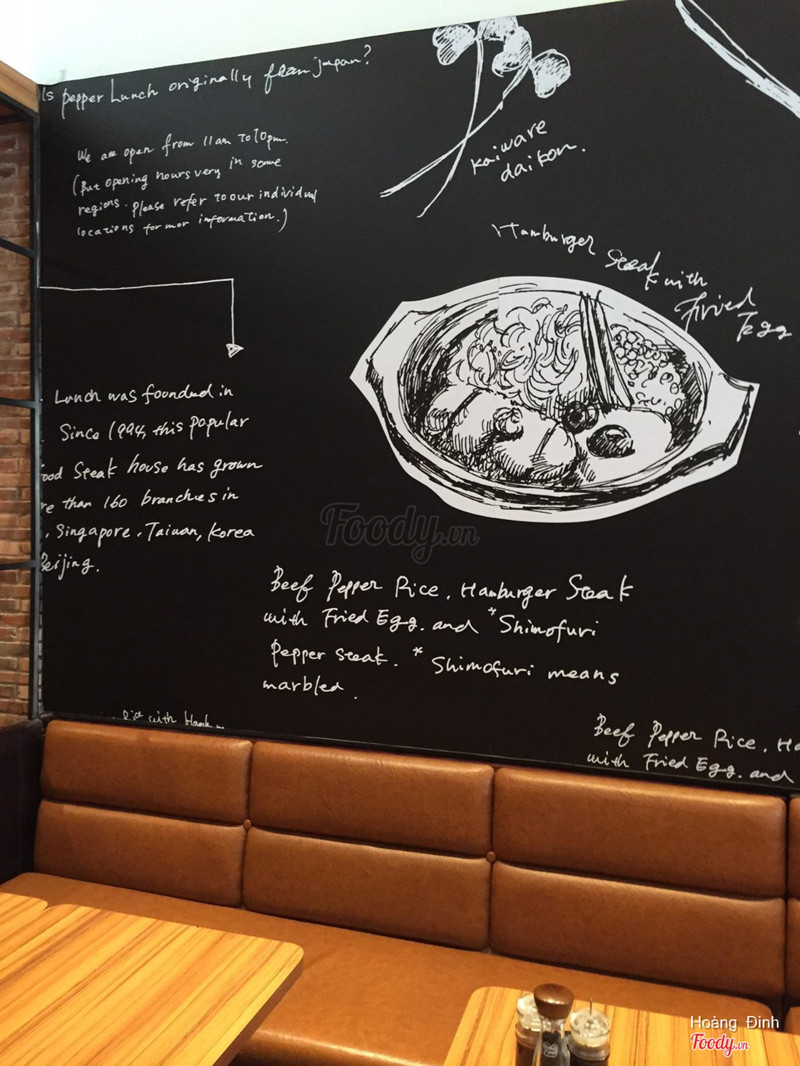 Is pepper Lunch originally from japan?
We are open from 11am to 10pm.
(But opening hours very in some
regions. please refer to our individual
locations for mor information.)
kaiware
daikon.
Hamburger Steak with
Fried
Egg
Lunch was founded in
Since 1994, this popular
ood Steak house has grown
re than 160 branches in
, Singapore, Taiwan, Korea
Beijing.
Foody.vn
Beef Pepper Rice, Hamburger Steak
with Fried Egg. and *Shimofuri
Pepper steak. * Shimofuri means
marbled.
Rice with
Beef Pepper Rice, Ha
with Fried Egg. and
Hoàng Đinh
Foody.vn